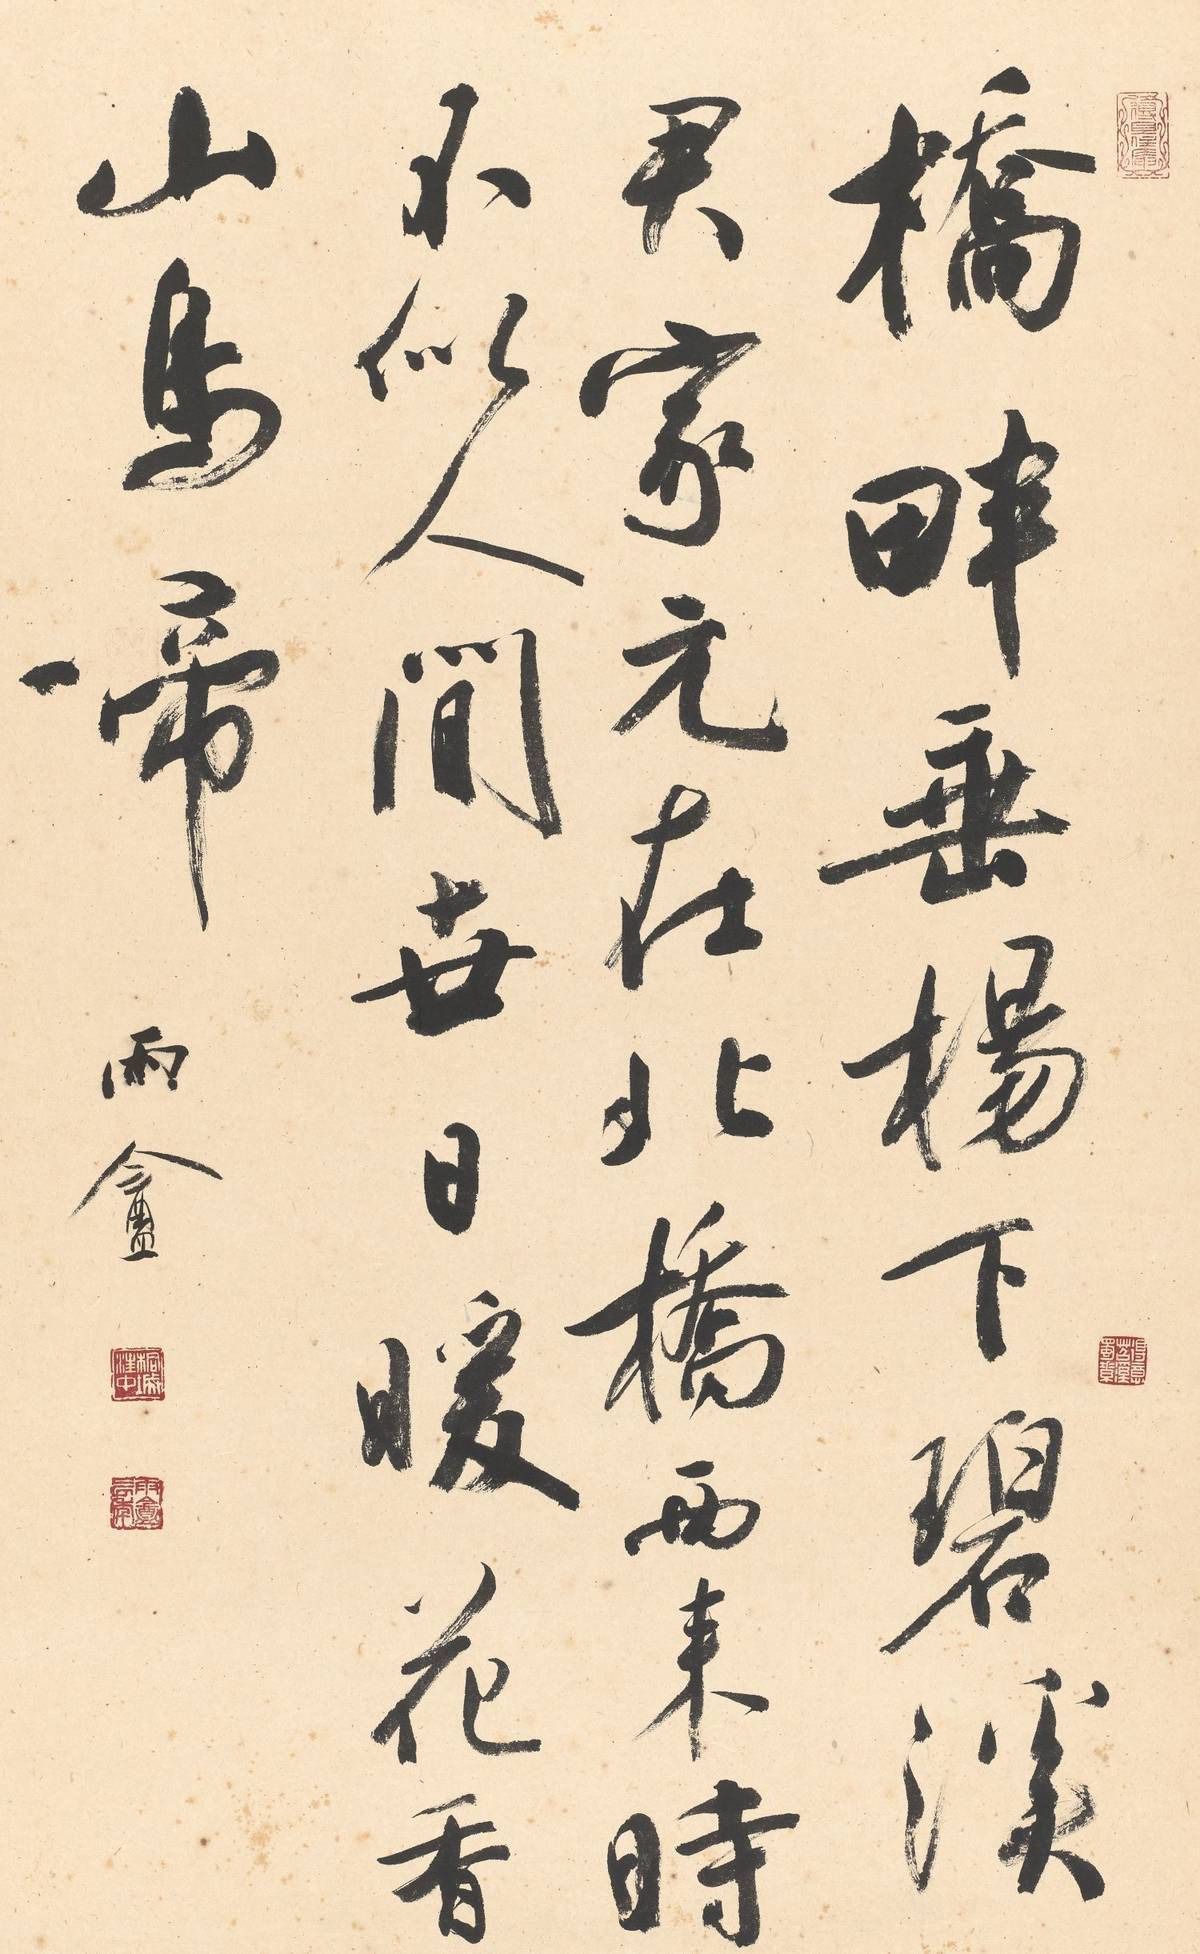 橋畔垂楊下碧溪
君家元在北橋西來時
不似人間世日暖花香
山鳥啼
雨盦